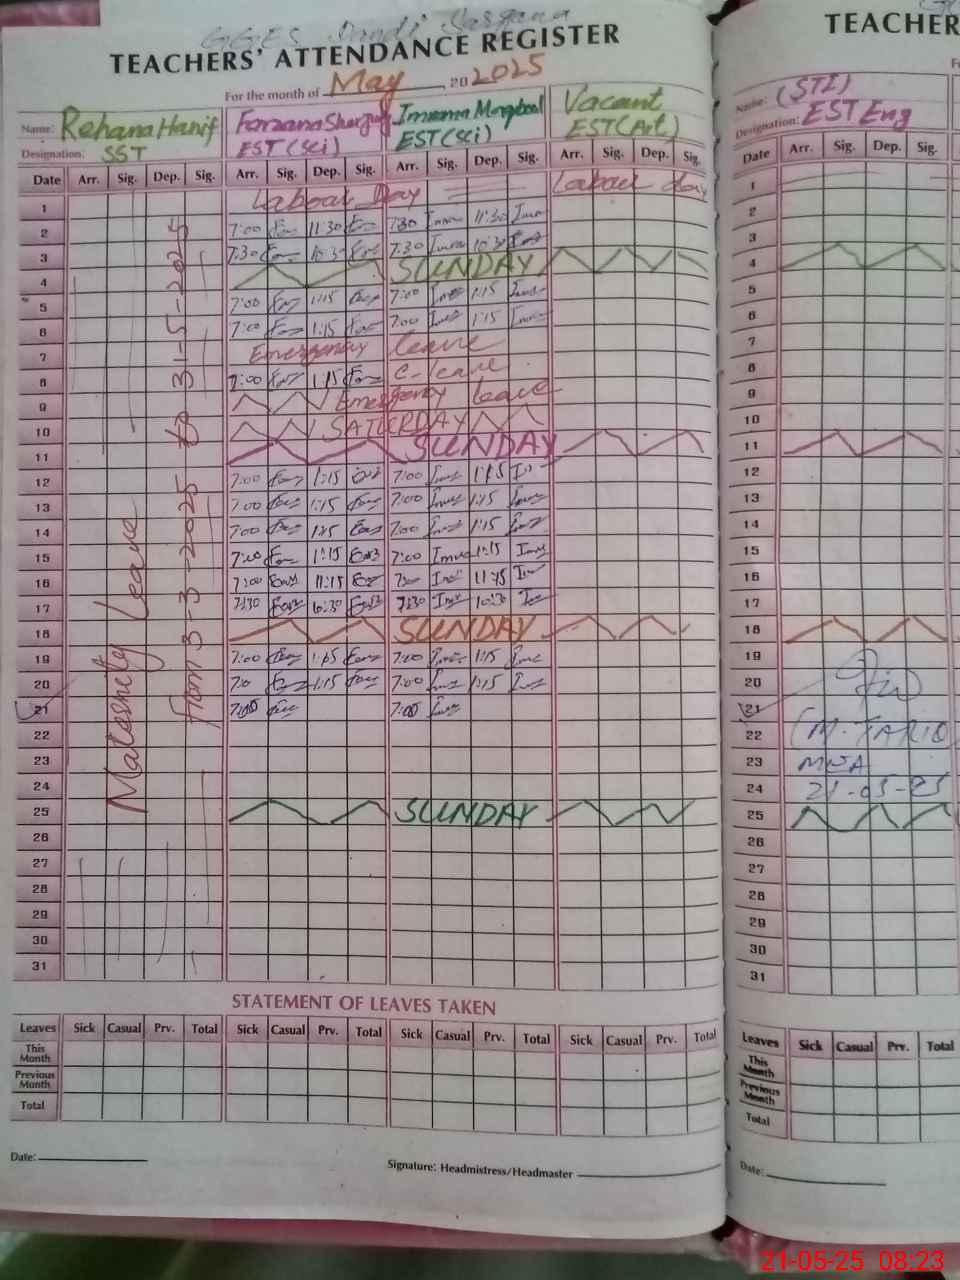 GGES Dandi Sargana
TEACHERS' ATTENDANCE REGISTER
For the month of May, 2025
Name: Rehana Hanif
Designation: SST
EST (Sci)
EST (Sci)
Vacant
EST (Art)
Date Arr. Sig. Dep. Sig. Arr. Sig. Dep. Sig. Arr. Sig. Dep. Sig. Arr. Sig. Dep. Sig.
1 Labour Day Labour day
2 7:00 11:30 7:30 11:30
3 7:30 10:30 7:30 10:30
4 SUNDAY
5 7:00 1:15 7:00 1:15
6 7:00 1:15 7:00 1:15
7 Emergency leave
8 7:00 1:15 C-leave
9 Emergency leave
10 SATURDAY
11 SUNDAY
12 7:00 1:15 7:00 1:15
13 7:00 1:15 7:00 1:15
14 7:00 1:15 7:00 1:15
15 7:00 1:15 7:00 1:15
16 7:00 11:15 7:00 11:45
17 7:30 10:30 7:30 10:30
18 SUNDAY
19 7:00 1:15 7:00 1:15
20 7:0 1:15 7:00 1:15
21 7:00 7:00
22
23
24
25 SUNDAY
26
27
28
29
30
31
Maternity Leave
from 3-3-2025 to 31-5-2025
STATEMENT OF LEAVES TAKEN
Leaves Sick Casual Prv. Total Sick Casual Prv. Total Sick Casual Prv. Total Sick Casual Prv. Total
This Month
Previous Month
Total
Date:
Signature: Headmistress/Headmaster
TEACHER
Name: (STI)
Designation: EST Eng
Date Arr. Sig. Dep. Sig.
1
2
3
4
5
6
7
8
9
10
11
12
13
14
15
16
17
18
19
20
21
22 (M. TARIQ
23 MEA
24 21-05-25
25
26
27
28
29
30
31
Leaves Sick Casual Prv. Total
This Month
Previous Month
Total
Date:
21-05-25 08:23